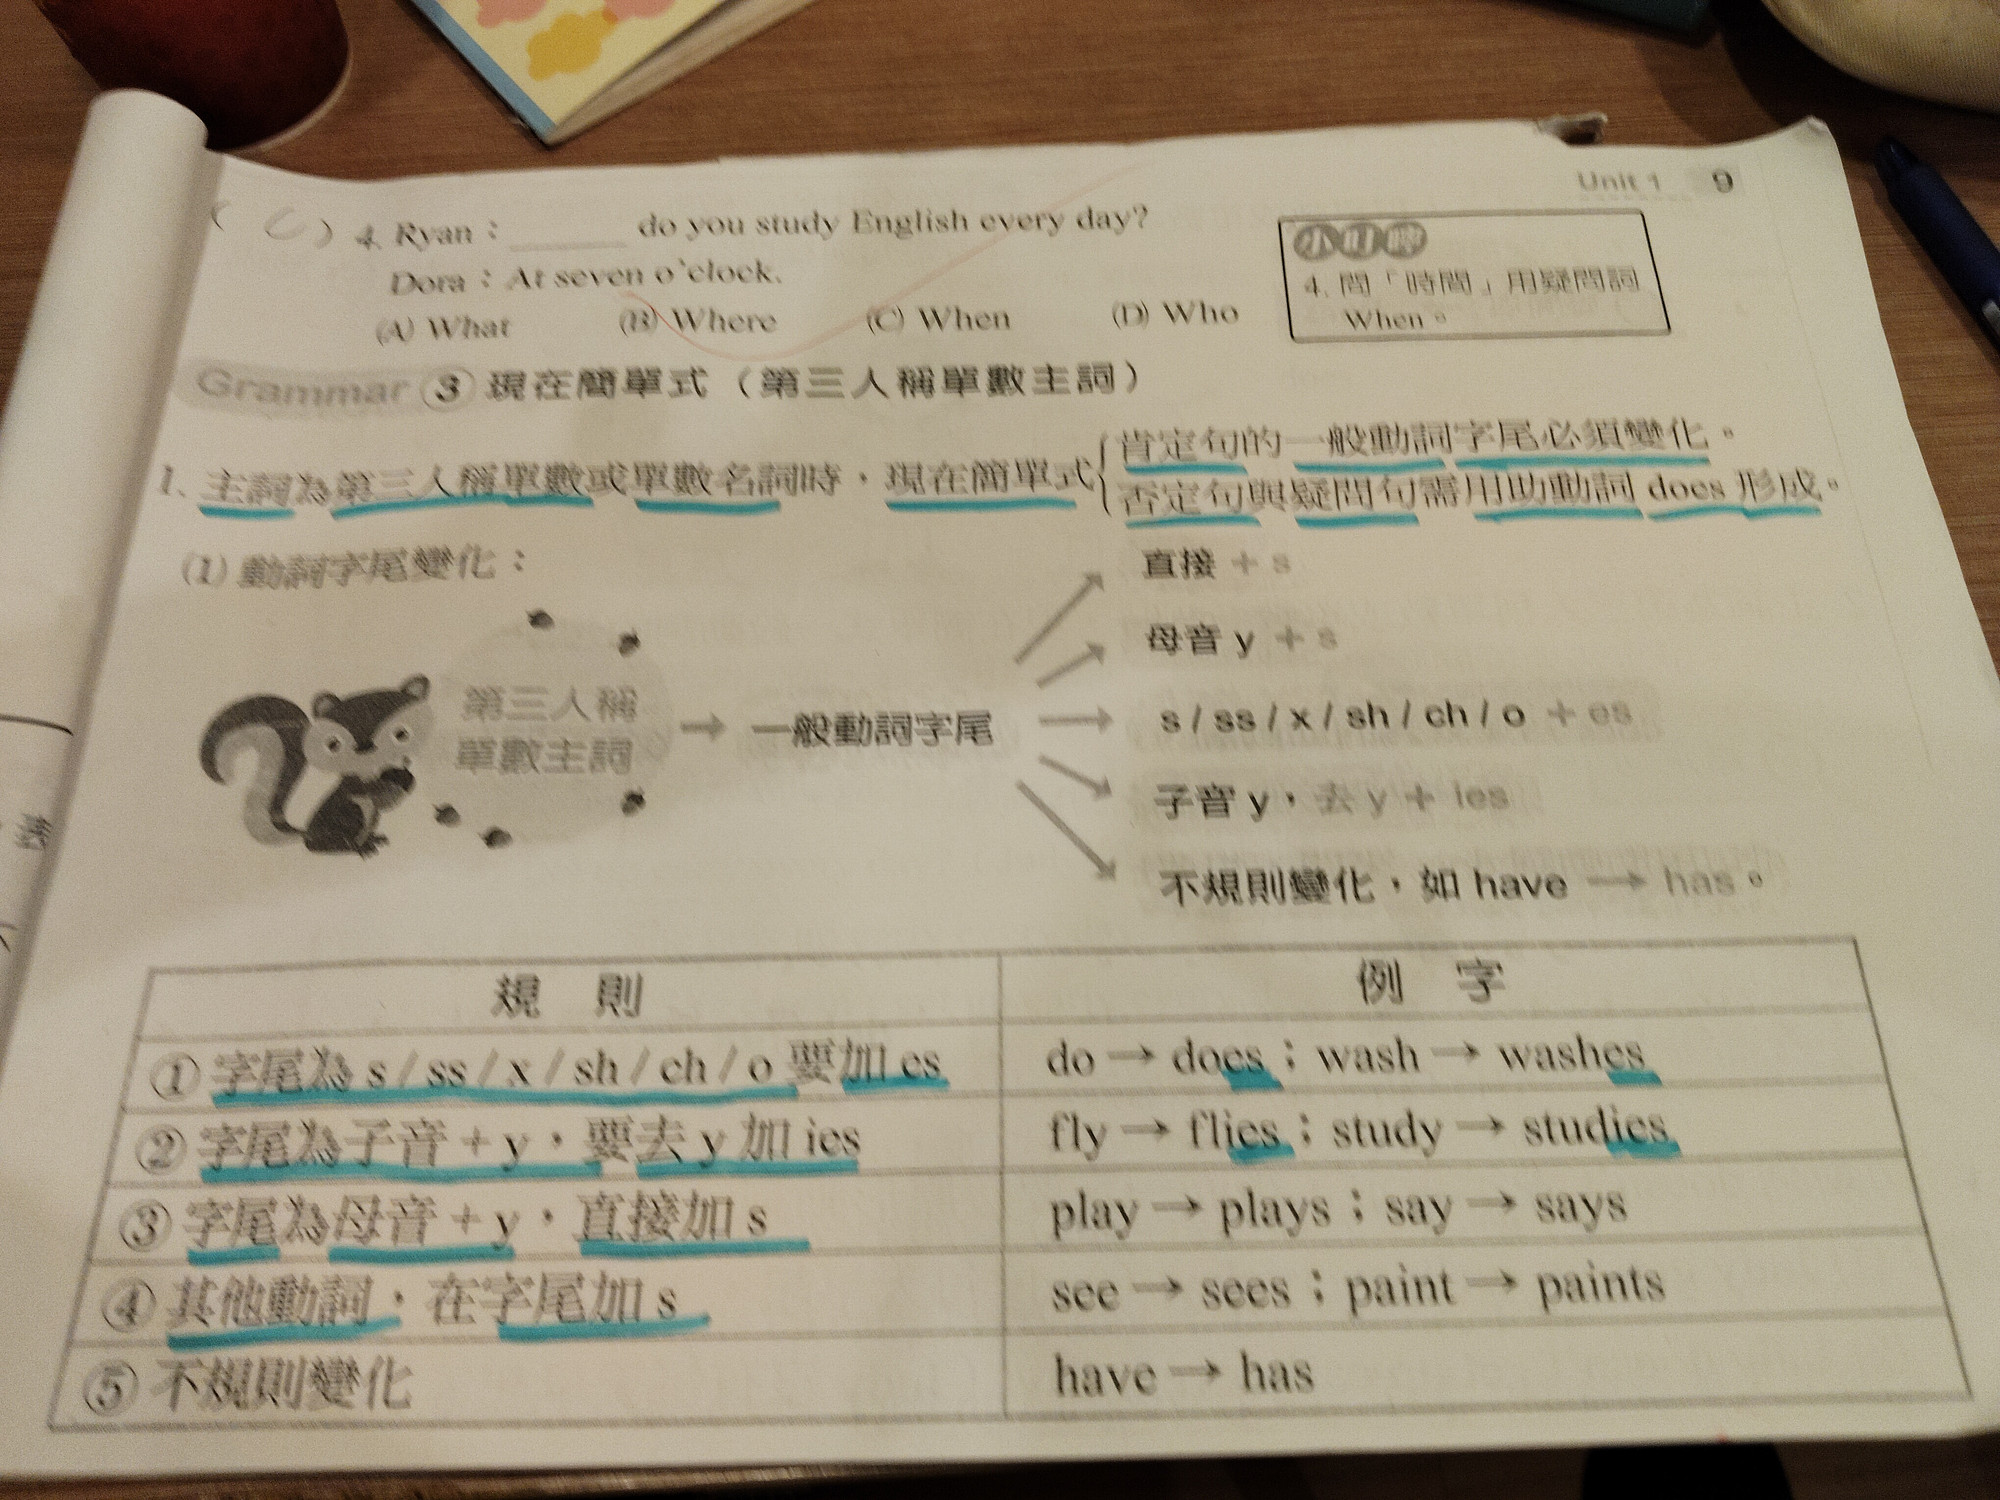 Unit 1 9
( C ) 4. Ryan：______ do you study English every day?
Dora：At seven o'clock.
(A) What (B) Where (C) When (D) Who
小叮嚀
4. 問「時間」用疑問詞
When。
Grammar ③ 現在簡單式（第三人稱單數主詞）
1. 主詞為第三人稱單數或單數名詞時，現在簡單式
肯定句的一般動詞字尾必須變化。
否定句與疑問句需用助動詞 does 形成。
(1) 動詞字尾變化：
第三人稱
單數主詞
→ 一般動詞字尾
直接 + s
母音 y + s
s / ss / x / sh / ch / o + es
子音 y，去 y + ies
不規則變化，如 have → has。
規 則 例 字
① 字尾為 s / ss / x / sh / ch / o 要加 es do → does；wash → washes
② 字尾為子音 + y，要去 y 加 ies fly → flies；study → studies
③ 字尾為母音 + y，直接加 s play → plays；say → says
④ 其他動詞，在字尾加 s see → sees；paint → paints
⑤ 不規則變化 have → has